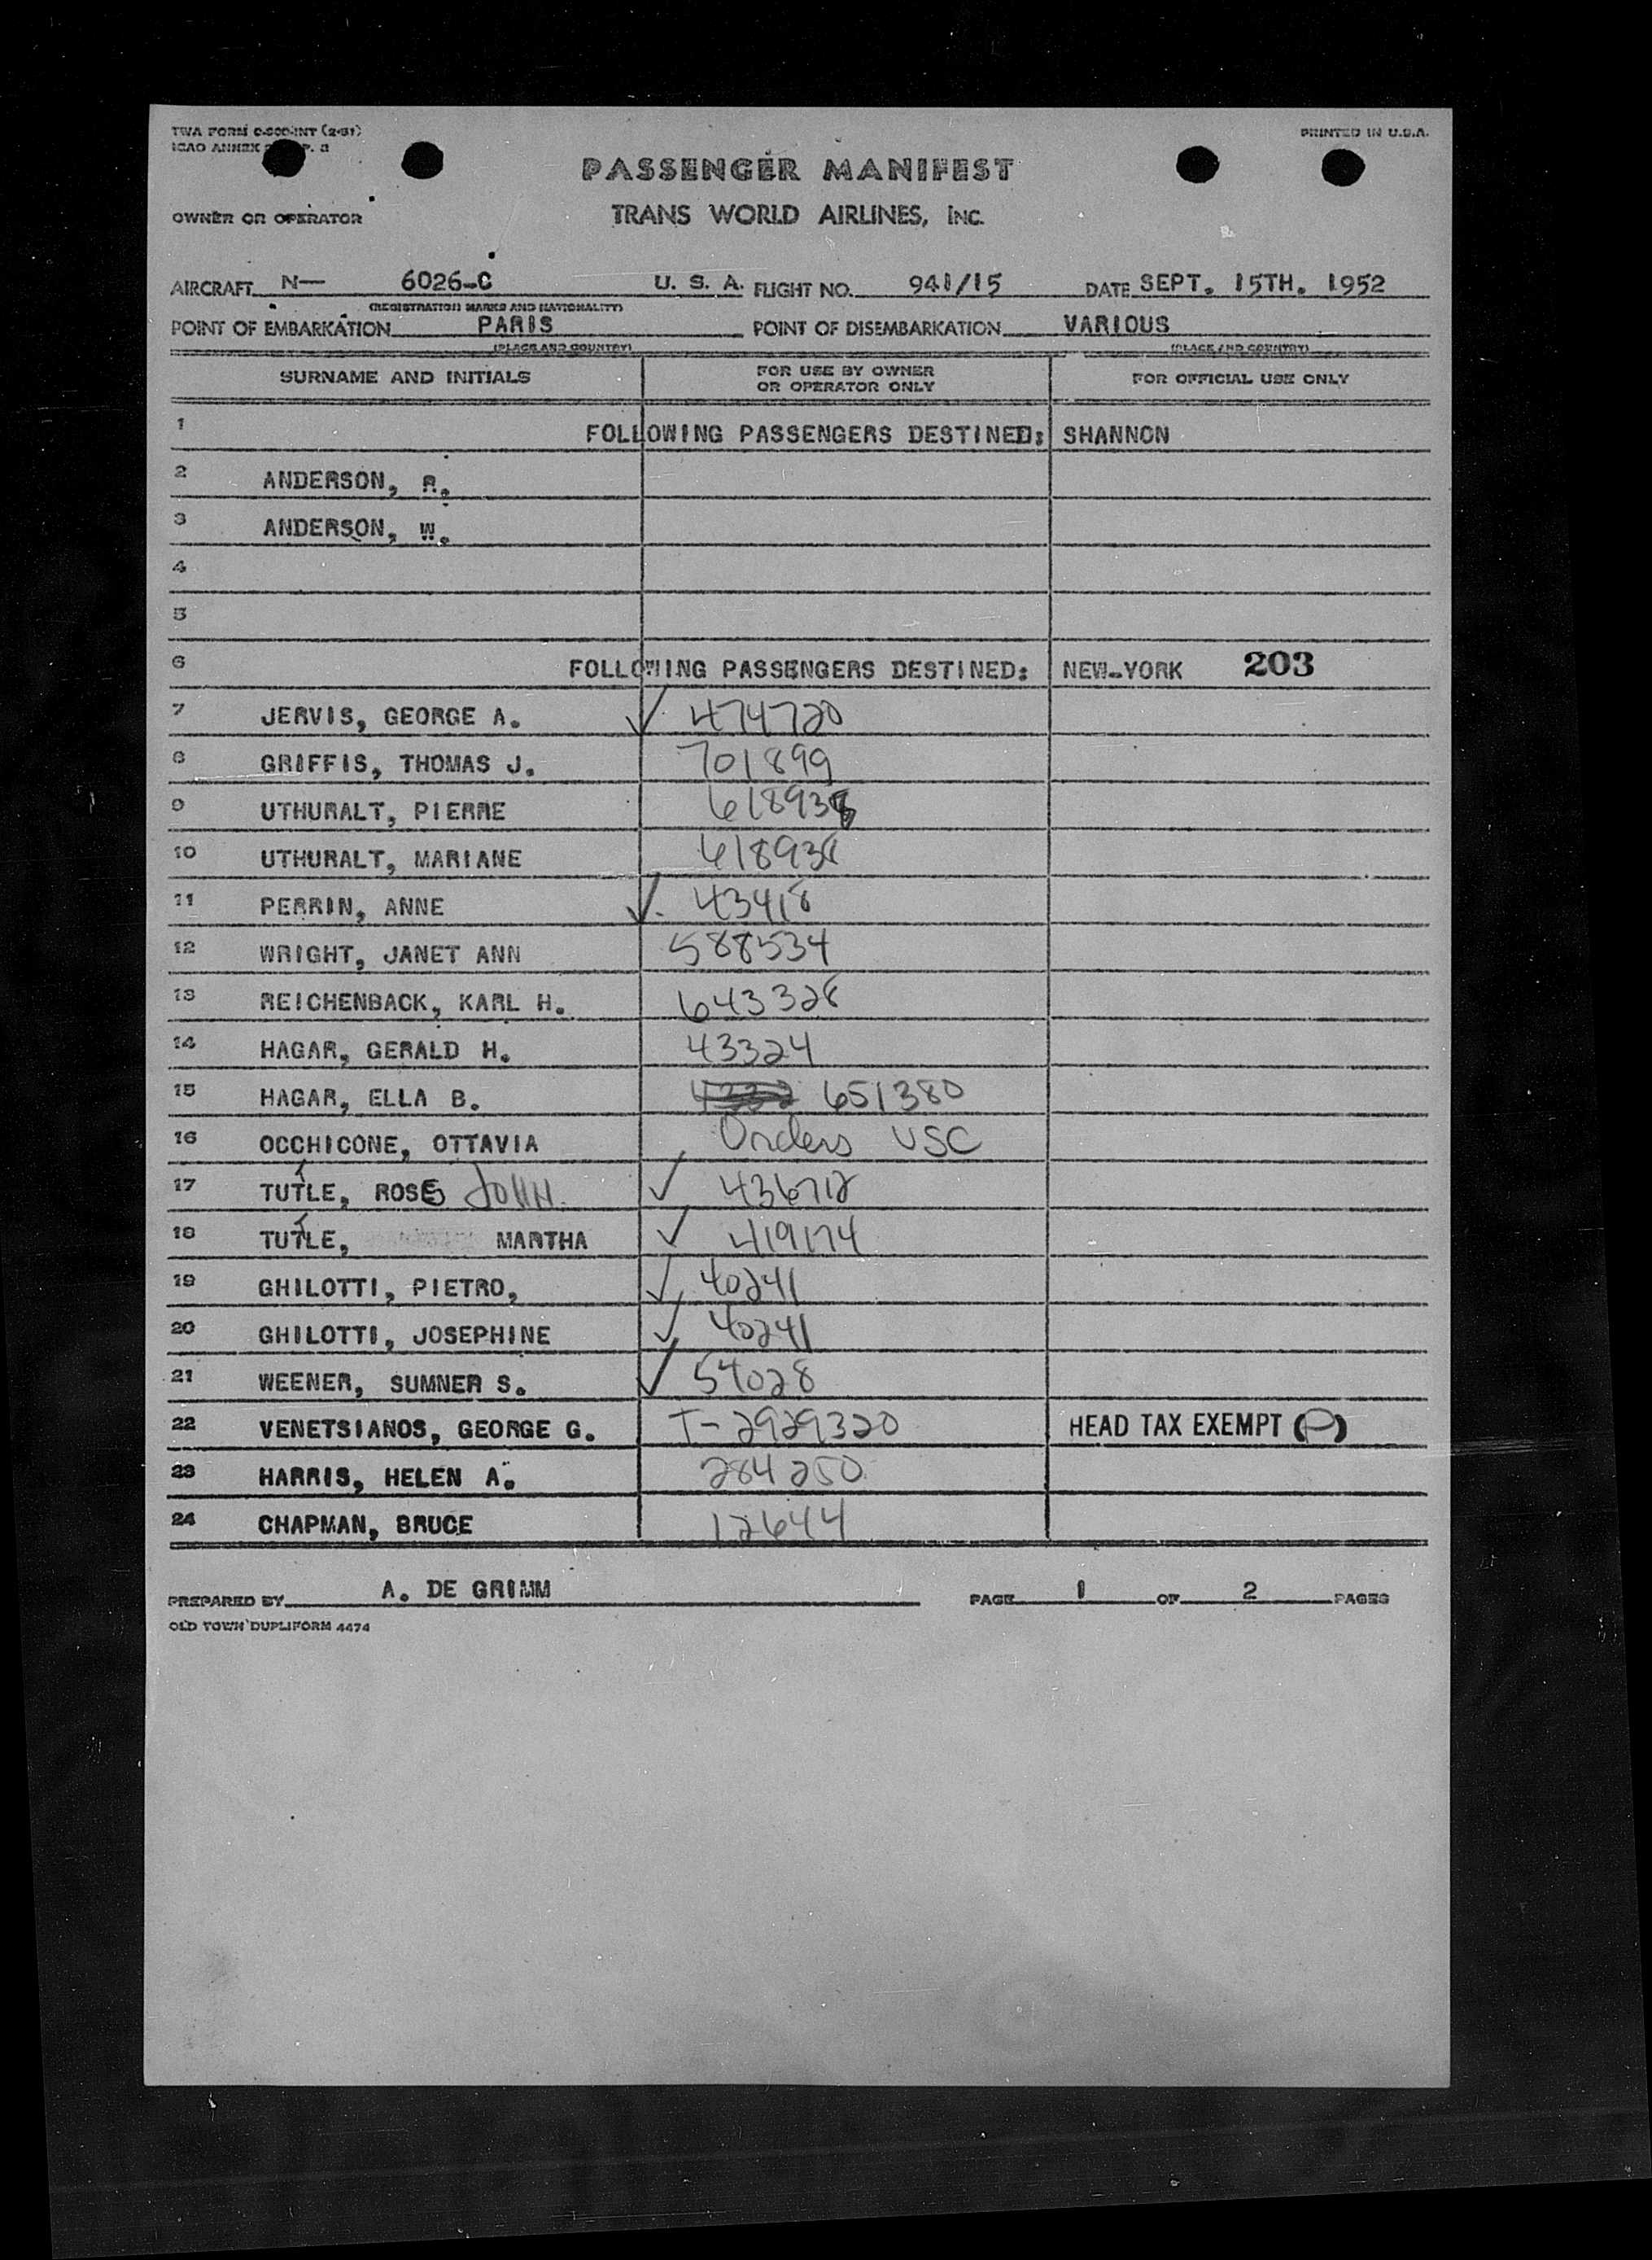 TWA FORM C-500-INT (2-51) PRINTED IN U.S.A.
ICAO ANNEX P. 8
PASSENGER MANIFEST
OWNER OR OPERATOR TRANS WORLD AIRLINES, INC.
AIRCRAFT N— 6026-C U. S. A. FLIGHT NO. 941/15 DATE SEPT. 15TH. 1952
(REGISTRATION MARKS AND NATIONALITY)
POINT OF EMBARKATION PARIS POINT OF DISEMBARKATION VARIOUS
(PLACE AND COUNTRY) (PLACE AND COUNTRY)
SURNAME AND INITIALS FOR USE BY OWNER OR OPERATOR ONLY FOR OFFICIAL USE ONLY
1 FOLLOWING PASSENGERS DESTINED: SHANNON
2 ANDERSON, R.
3 ANDERSON, W.
4
5
6 FOLLOWING PASSENGERS DESTINED: NEW-YORK 203
7 JERVIS, GEORGE A. ✓ 474720
8 GRIFFIS, THOMAS J. 701899
9 UTHURALT, PIERRE 618938
10 UTHURALT, MARIANE 618938
11 PERRIN, ANNE ✓ 43418
12 WRIGHT, JANET ANN 588534
13 REICHENBACK, KARL H. 643328
14 HAGAR, GERALD H. 43324
15 HAGAR, ELLA B. 651380
16 OCCHICONE, OTTAVIA Orders USC
17 TUTLE, ROSS JOHN ✓ 436712
18 TUTLE, MARTHA ✓ 419174
19 GHILOTTI, PIETRO, ✓ 40241
20 GHILOTTI, JOSEPHINE ✓ 40241
21 WEENER, SUMNER S. ✓ 54028
22 VENETSIANOS, GEORGE G. T-2929320 HEAD TAX EXEMPT (P)
23 HARRIS, HELEN A. 284250
24 CHAPMAN, BRUCE 12644
PREPARED BY A. DE GRIMM PAGE 1 OF 2 PAGES
OLD TOWN DUPLIFORM 4474